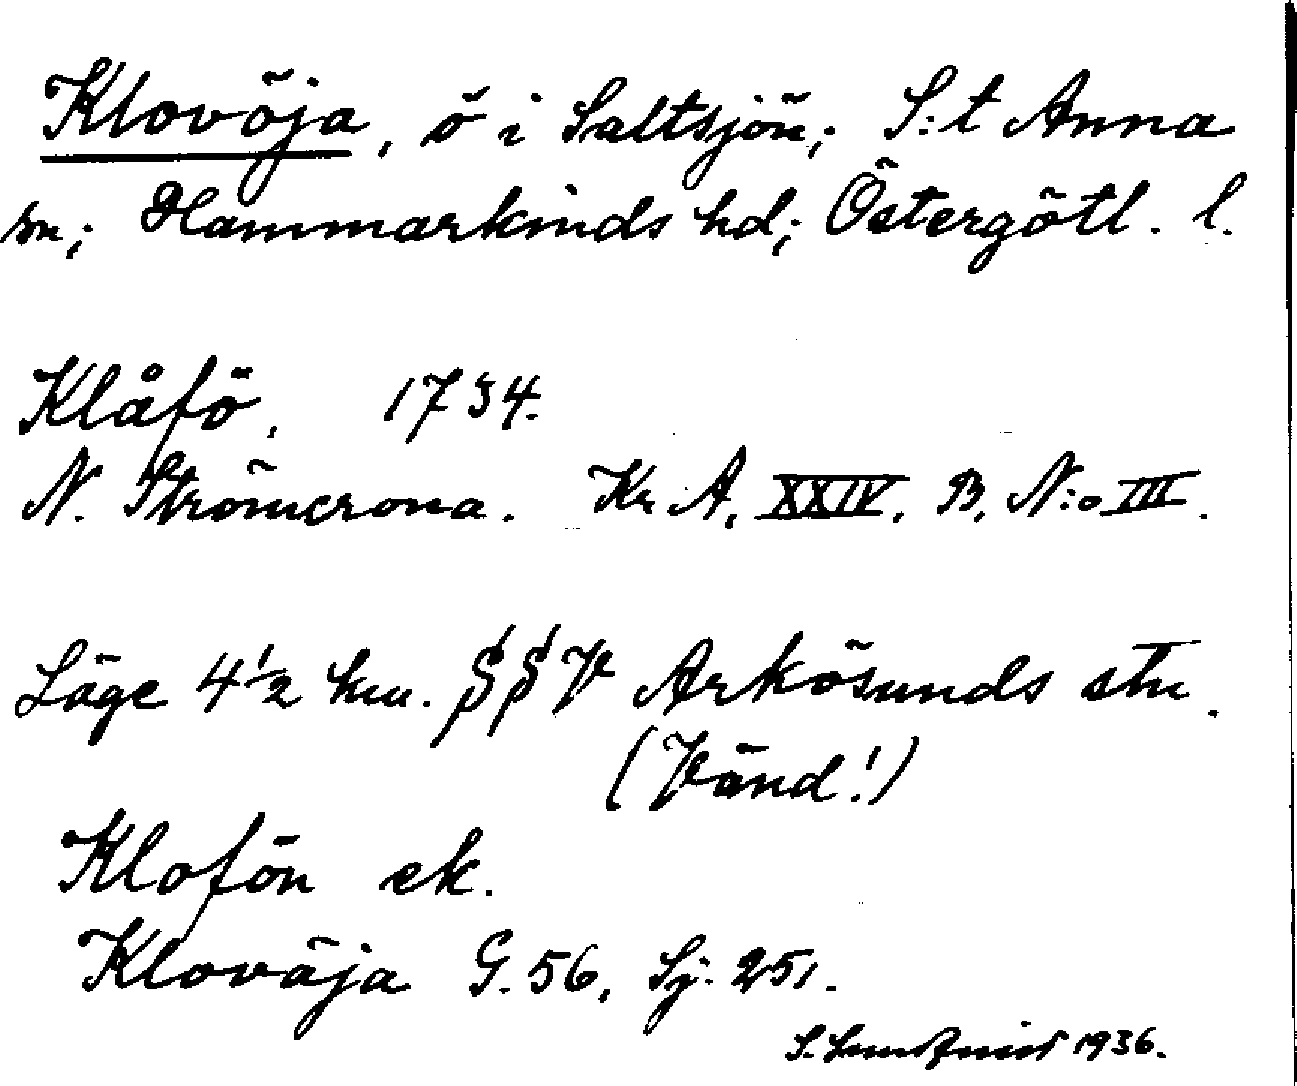 Klovöja, ö i Saltsjön; S:t Anna
sn; Hammarkinds hd; Östergötl. l.
Klåfö. 1734.
N. Strömcrona. Kr. A. XXIV. B. N:o III.
Läge 4 1/2 km. SSV Arkösunds stn.
(Vänd!)
Klofön ek.
Klovöja G. 56, Sj. 251.
S. Lundqvist 1936.